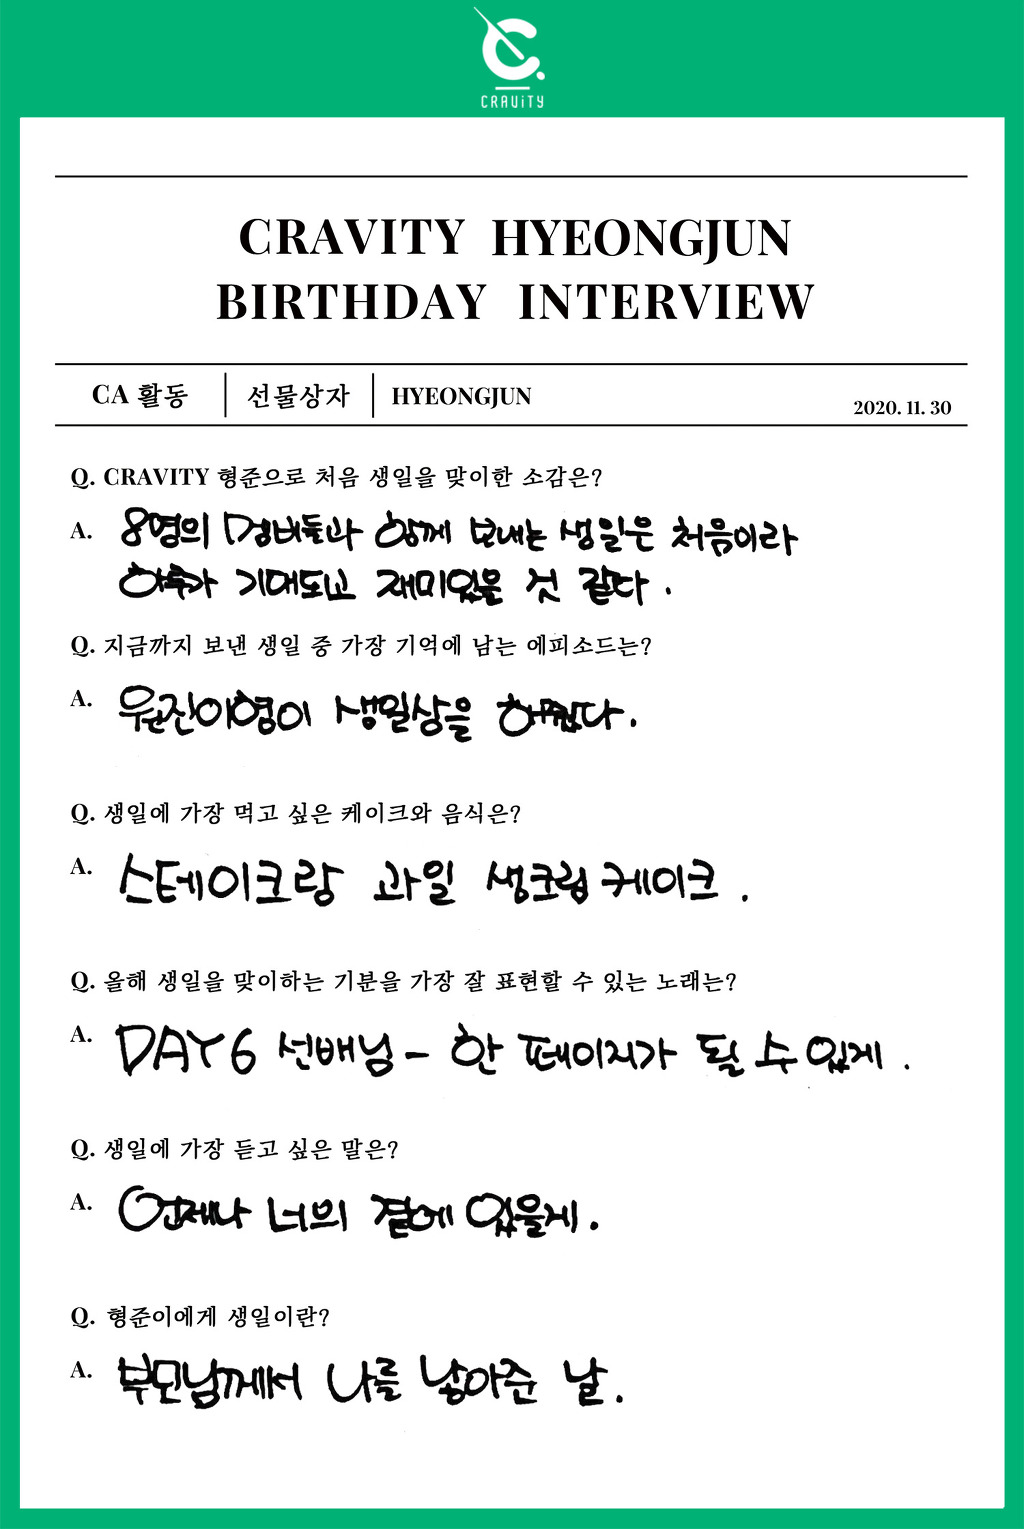 CRAViTY
CRAVITY HYEONGJUN
BIRTHDAY INTERVIEW
CA 활동 선물상자 HYEONGJUN 2020. 11. 30
Q. CRAVITY 형준으로 처음 생일을 맞이한 소감은?
A. 8명의 멤버들과 함께 보내는 생일은 처음이라
하루가 기대도되고 재미있을 것 같다.
Q. 지금까지 보낸 생일 중 가장 기억에 남는 에피소드는?
A. 원진이형이 생일상을 해줬다.
Q. 생일에 가장 먹고 싶은 케이크와 음식은?
A. 스테이크랑 과일 생크림 케이크.
Q. 올해 생일을 맞이하는 기분을 가장 잘 표현할 수 있는 노래는?
A. DAY6 선배님 - 한 페이지가 될 수 있게.
Q. 생일에 가장 듣고 싶은 말은?
A. 언제나 너의 곁에 있을게.
Q. 형준이에게 생일이란?
A. 부모님께서 나를 낳아준 날.